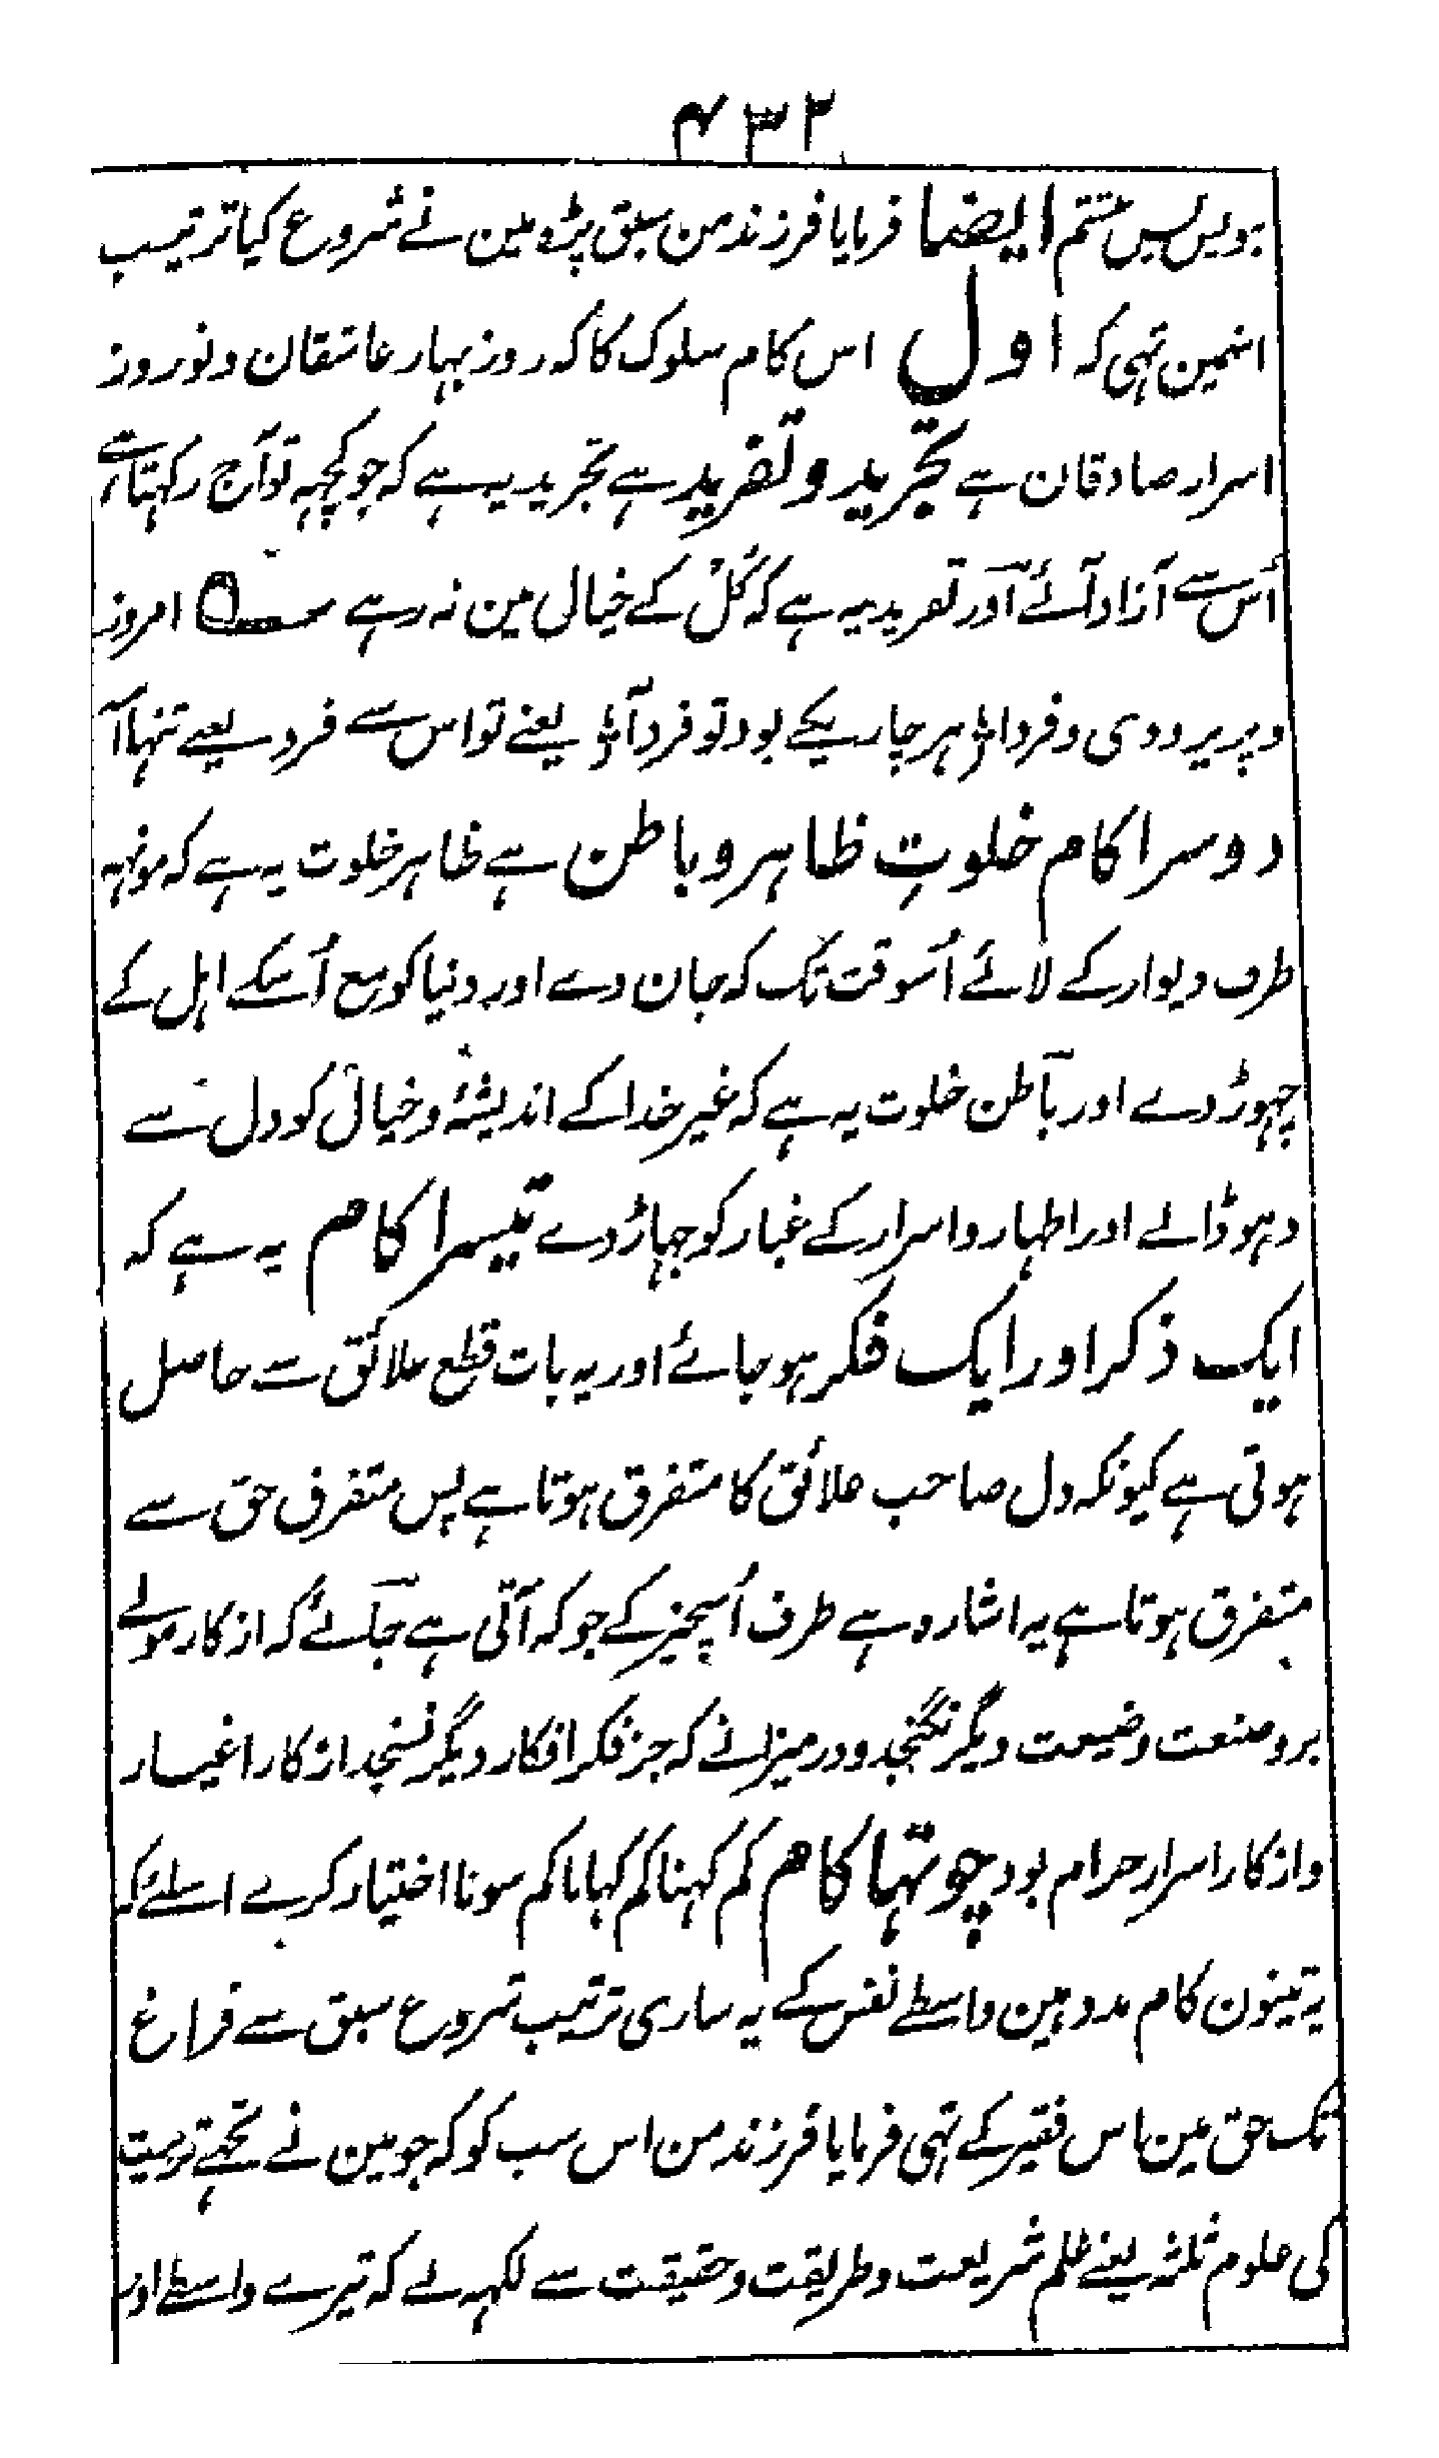 ۴۳۲
بویس پس متم ایضا فرمایا فرزند من سبق پڑو مین نے شروع کیا ترتیب
اسمین تہی کہ اول اس کام سلوک کا کہ روز بہار عاشقان و نوروز
اسرار صادقان ہے تجرید و تفرید ہے تجرید یہ ہے کہ جو کچہہ تو آج رکہتا ہے
اُس سے آزاد آئے اور تفرید یہ ہے کہ کُل کے خیال مین نہ رہے امروز
و پریر و دی و فردا ؛ ہر چار یکے بود تو فرد آ ؛ یعنے تو اس سے فرد یعنے تنہا آ
دوسرا کام خلوتِ ظاہر و باطن ہے ظاہر خلوت یہ ہے کہ مونہہ
طرف دیوار کے لائے اُسوقت تک کہ جان دے اور دنیا کو مع اُسکے اہل کے
چہوڑ دے اور باطن خلوت یہ ہے کہ غیر خدا کے اندیشۂ و خیال کو دل سے
دہو ڈالے اور اظہار و اسرار کے غبار کو جہاڑ دے تیسرا کام یہ ہے کہ
ایک ذکر اور ایک فکر ہو جائے اور یہ بات قطع علائق سے حاصل
ہوتی ہے کیونکہ دل صاحب علائق کا متفرق ہوتا ہے پس متفرق حق سے
متفرق ہوتا ہے یہ اشارہ ہے طرف اُسچیز کے جو کہ آتی ہے جائے کہ از کار مولے
برو صنعت وضیعت دیگر نگنجد و در میزانے کہ جز فکر افکار دیگر نسنجد از کار اغیار
و از کار اسرار حرام بود چوتہا کام کم کہنا کم کہانا کم سونا اختیار کرے اسلئے کہ
یہ تینون کام مدد ہین واسطے نفس کے یہ ساری ترتیب شروع سبق سے فراغ
تک حق مین اس فقیر کے تہی فرمایا فرزند من اس سب کو کہ جو مین نے تجہے تربیت
کی علوم ثلثہ یعنے علم شریعت و طریقت و حقیقت سے لکہہ لے کہ تیرے واسطے اور